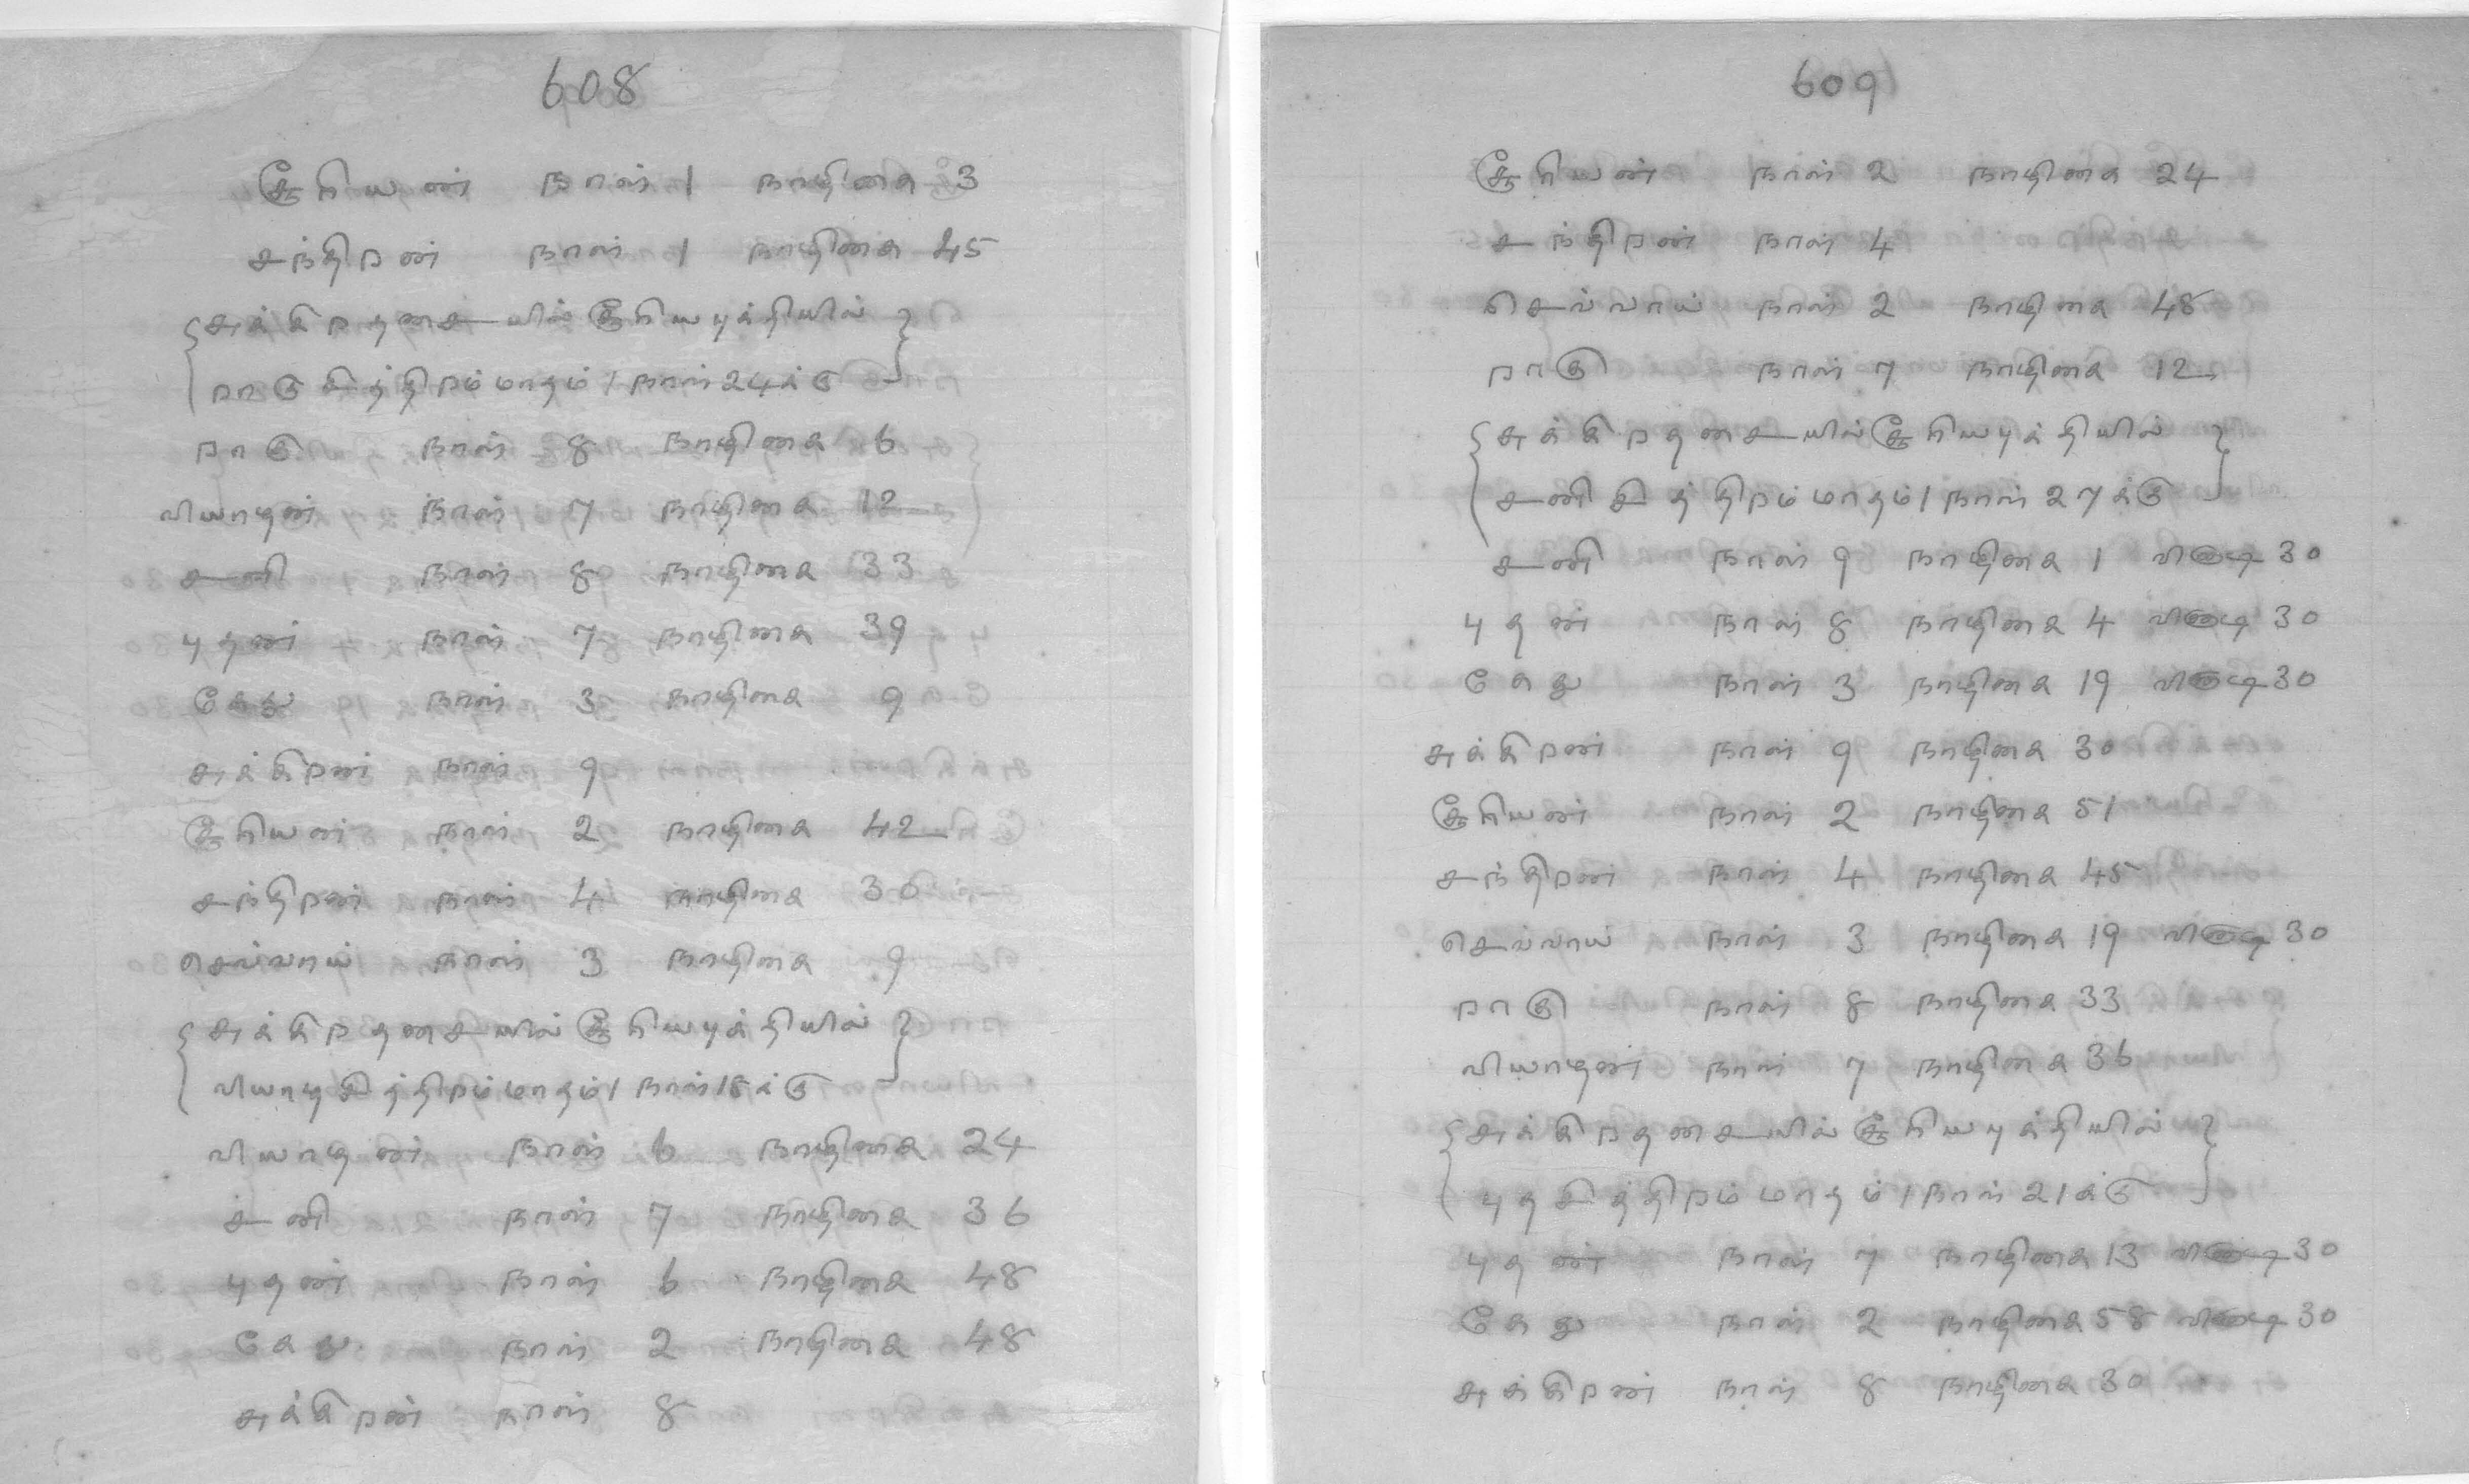 608
சூரியன் நாள் 1 நாழிகை 3
சந்திரன் நாள் 1 நாழிகை 45
{சுக்கிரதசையில் சூரியபுக்தியில்}
{ராகு சித்திரம் மாதம் 1 நாள் 24க்கு}
ராகு நாள் 8 நாழிகை 6
வியாதன் நாள் 7 நாழிகை 12
சனி நாள் 8 நாழிகை 33
புதன் நாள் 7 நாழிகை 39
கேது நாள் 3 நாழிகை 9
சுக்கிரன் நாள் 9
சூரியன் நாள் 2 நாழிகை 42
சந்திரன் நாள் 4 நாழிகை 30
செவ்வாய் நாள் 3 நாழிகை 9
{சுக்கிரதசையில் சூரியபுக்தியில்}
{வியாத சித்திரம் மாதம் 1 நாள் 18க்கு}
வியாதன் நாள் 6 நாழிகை 24
சனி நாள் 7 நாழிகை 36
புதன் நாள் 6 நாழிகை 48
கேது நாள் 2 நாழிகை 48
சுக்கிரன் நாள் 8
609
சூரியன் நாள் 2 நாழிகை 24
சந்திரன் நாள் 4
செவ்வாய் நாள் 2 நாழிகை 48
ராகு நாள் 7 நாழிகை 12
{சுக்கிரதசையில் சூரியபுக்தியில்}
{சனி சித்திரம் மாதம் 1 நாள் 27க்கு}
சனி நாள் 9 நாழிகை 1 விநாடி 30
புதன் நாள் 8 நாழிகை 4 விநாடி 30
கேது நாள் 3 நாழிகை 19 விநாடி 30
சுக்கிரன் நாள் 9 நாழிகை 30
சூரியன் நாள் 2 நாழிகை 51
சந்திரன் நாள் 4 நாழிகை 45
செவ்வாய் நாள் 3 நாழிகை 19 விநாடி 30
ராகு நாள் 8 நாழிகை 33
வியாதன் நாள் 7 நாழிகை 36
{சுக்கிரதசையில் சூரியபுக்தியில்}
{புத சித்திரம் மாதம் 1 நாள் 21க்கு}
புதன் நாள் 7 நாழிகை 13 விநாடி 30
கேது நாள் 2 நாழிகை 58 விநாடி 30
சுக்கிரன் நாள் 8 நாழிகை 30